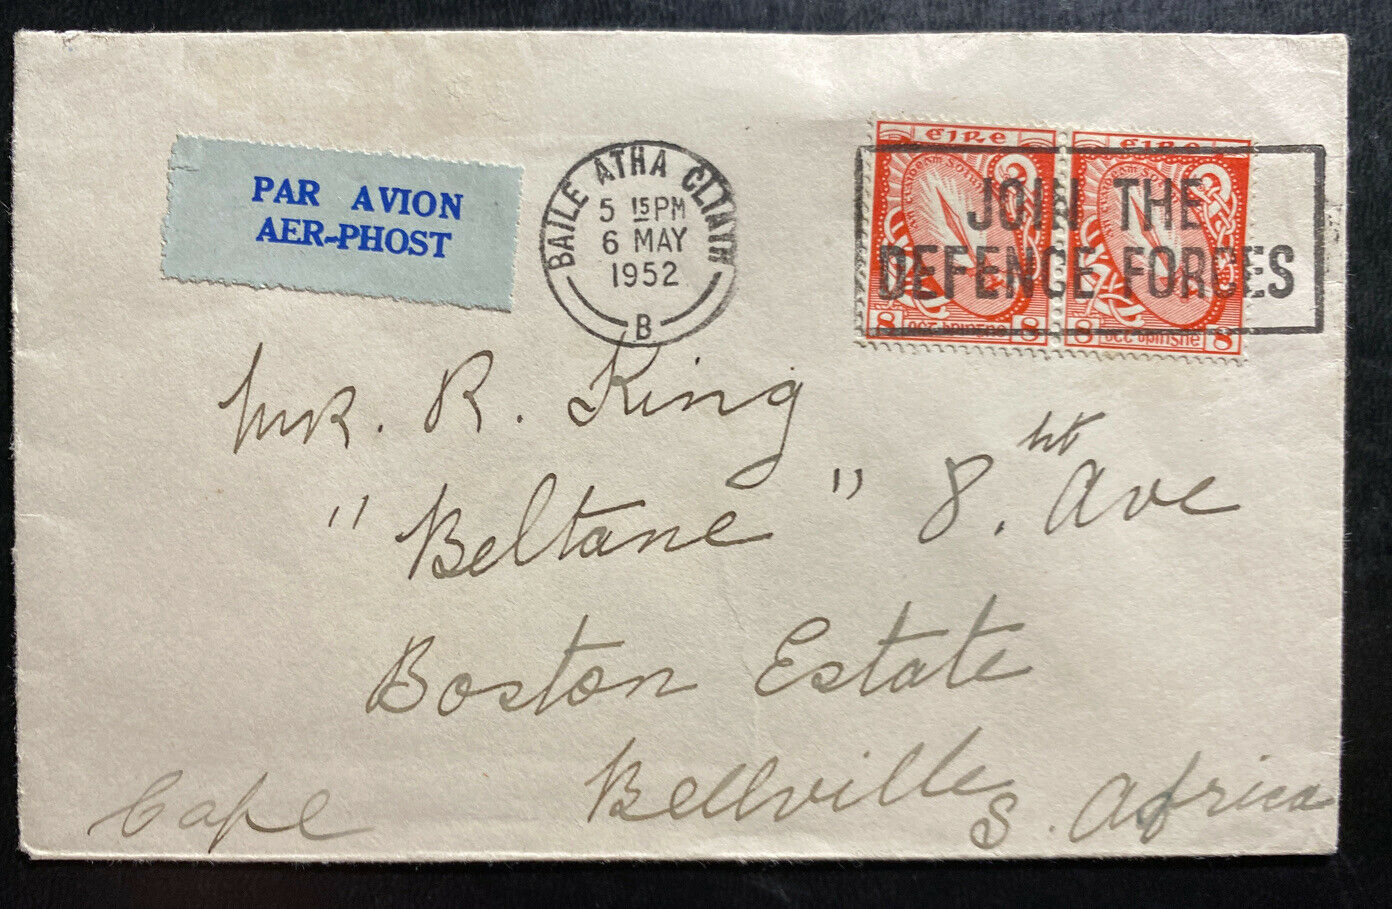 PAR AVION
AER-PHOST
BAILE ATHA CLIATH
5 15PM
6 MAY
1952
B
éire éire
JOIN THE
DEFENCE FORCES
8 8 8 8
Mr. R. King
"Beltane" 8. ht Ave
Boston Estate
Bellville
Cape S. Africa